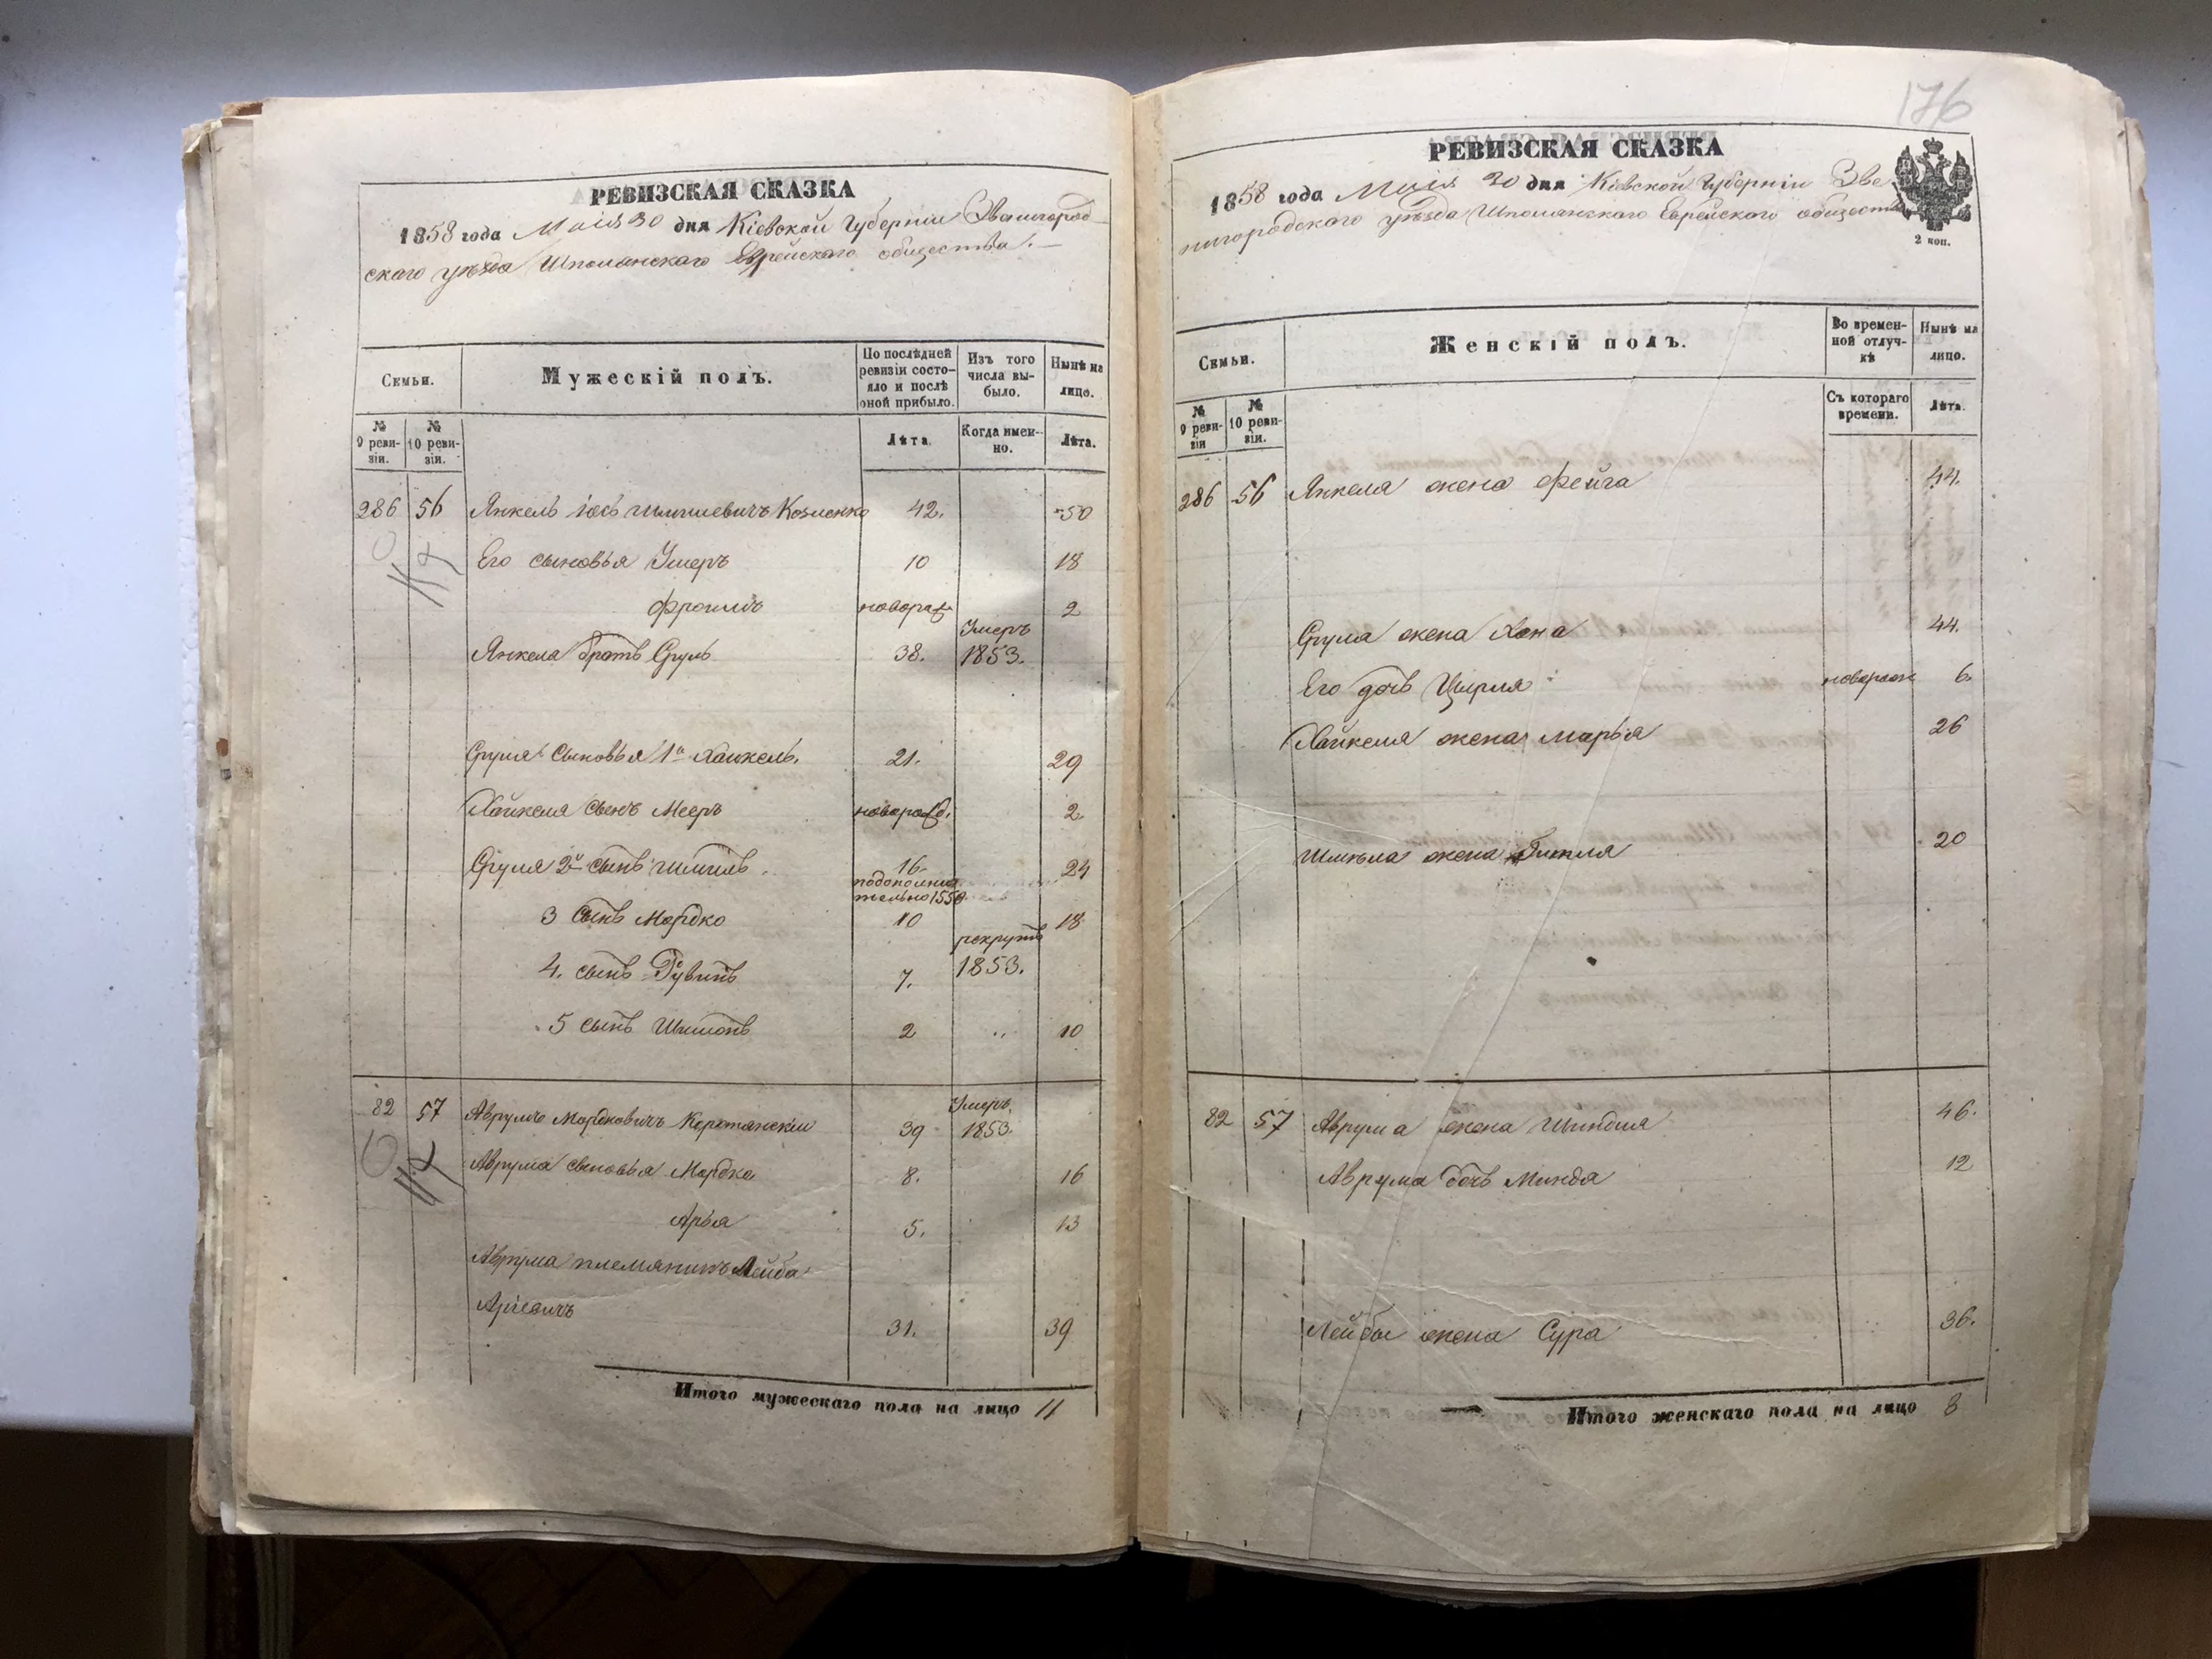 РЕВИЗСКАЯ СКАЗКА
1858 года Маія 30 дня Кіевской Губерніи Звенигород-
скаго уѣзда Шполянскаго Еврейскаго общества.
Семьи.
Мужескій полъ.
По послѣдней ревизіи состо-яло и послѣ оной прибыло.
Изъ того числа вы-было.
Нынѣ на лицо.
№ 9 реви-зіи.
№ 10 реви-зіи.
Лѣта.
Когда имен-но.
Лѣта.
286 56 Янкель Іось Шмулевичъ Козленко 42. 50
Его сыновья Умеръ 10 18
Фроимъ новорож 2
Янкела братъ Сруль 38. Умеръ 1853.
Сруля сыновья 1й Хайкель. 21. 29
Хайкеля сынъ Мееръ новорожд. 2
Сруля 2й сынъ Шмиль 16 24
подополни-
тельно 1850
3 сынъ Мордко 10 18
4. сынъ Рувинъ 7. рекрутъ 1853.
5 сынъ Шимонъ 2 .. 10
82 57 Аврумъ Мордковичъ Коротянскій 39 Умеръ 1853.
Аврума сыновья Мордко 8. 16
Арья 5. 13
Аврума племяникъ Лейба
Аріевичъ 31. 39
Итого мужескаго пола на лицо 11
176
РЕВИЗСКАЯ СКАЗКА
1858 года Маія 30 дня Кіевской Губерніи Зве-
нигородскаго уѣзда Шполянскаго Еврейскаго общества
2 коп.
Семьи.
Женскій полъ.
Во времен-ной отлуч-кѣ
Нынѣ на лицо.
№ 9 реви-зіи
№ 10 реви-зіи.
Съ котораго времени.
Лѣта.
286 56 Янкеля жена Фейга 44.
Сруля жена Хана 44.
Его дочь Цирля новорож 6.
Хайкеля жена Марья 26
Шмиля жена 20
82 57 Аврума жена Шиндля 46.
Аврума дочь Минда 12
Лейбы жена Сура 36.
Итого женскаго пола на лицо 8